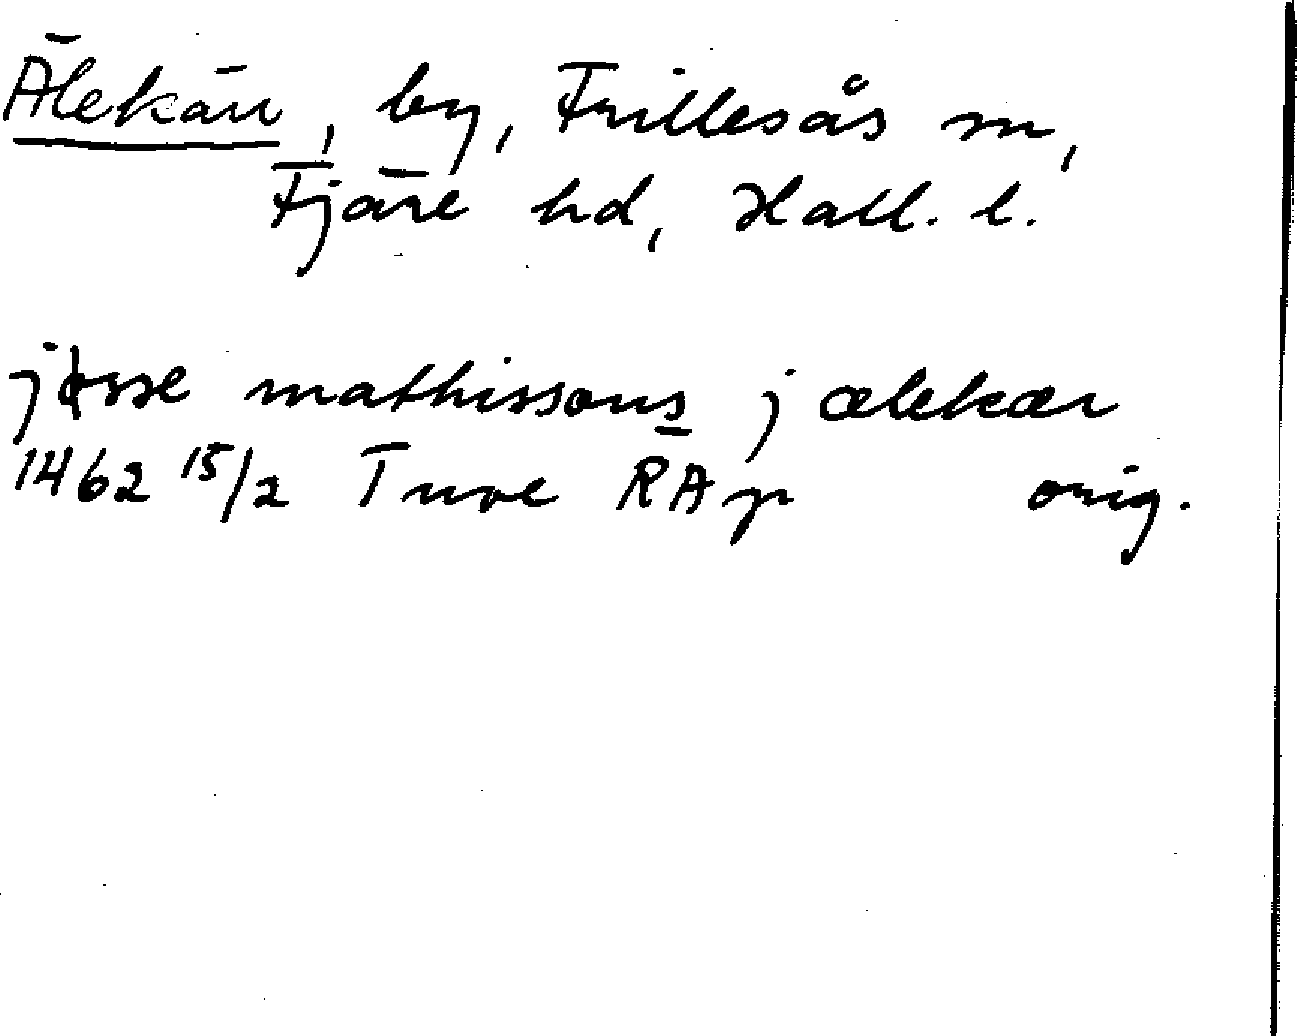 Älekärr, by, Frillesås sn,
Fjäre hd, Hall. l.
jøsse mathissons j ælekær
1462 15/2 Tuve RAp orig.